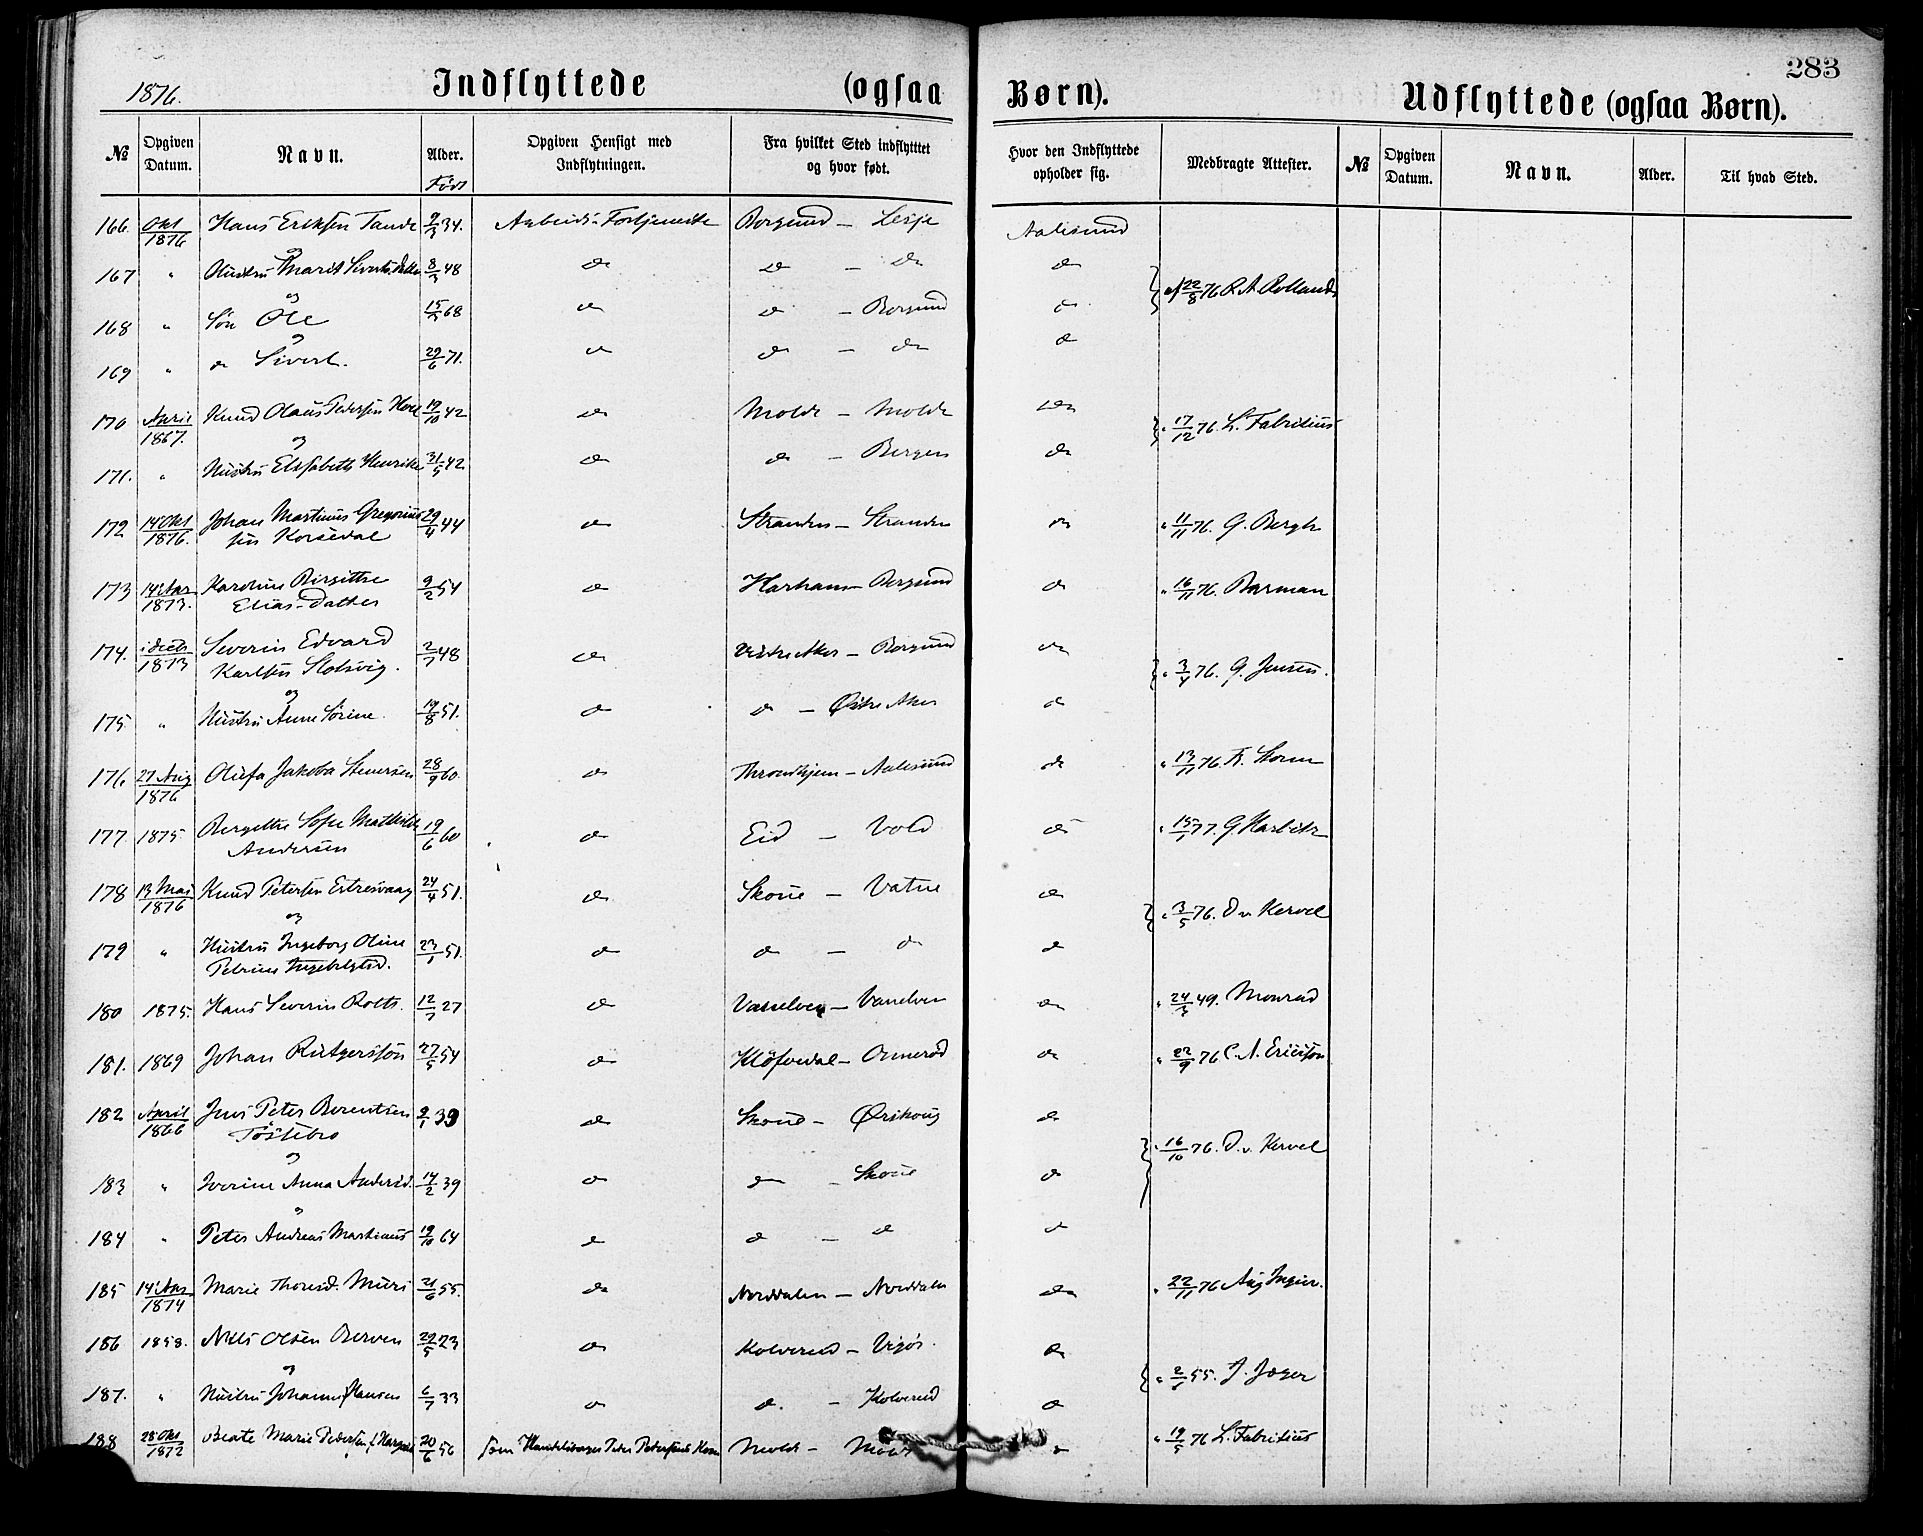 283
1876. Indflyttede (ogsaa Børn). Udflyttede (ogsaa Børn).
№ Opgiven Datum. Navn. Alder. Født Opgiven Hensigt med Indflytningen. Fra hvilket Sted indflytttet og hvor født. Hvor den Indflyttede opholder sig. Medbragte Attester. № Opgiven Datum. Navn. Alder. Til hvad Sted.
166. Okt 1876 Hans Eriksen Tande 34. Arbeids-Fortjeneste Borgund – Lesje Aalesund
og
167 " Hustru Marit Siverts Datter 8/3 48 do do – do do af 22/8 76
og
168 " Søn Ole 68 do do – Borgund do
og
169 " do Sivert. 29/6 71. do do – do do
170 April 1867. Knud Olaus Pedersen 19/10 42 do Molde – Molde do " 17/12 76. L. Fabritius
og
171. " Hustru Elisabeth Henrikke 31/5 42 do do – Bergen do
172 14 Okt 1876. Johan Martinus Gregorius 29/4 44 do Stranden – Stranden do " 11/11 76. G. Bergh
sen Korsedal
173 1873. Karoline Birgitte 9/2 54 do Harham – Borgund do " 16/11 76. Barman
Elias-Datter
174. 1873 Severin Edvard 2/7 48 do Vestre Aker – Borgund do " 3/4 76. G. Jensen.
Karlsen Slotsvig.
og
175 " Hustru Anne Sørine. 19/8 51. do do – Østre Aker do
176 27 Aug 1876 Olufa Jakoba Stenersen 28/9 60. do Throndhjem – Aalesund do " 13/11 76. Fr. Storm
177. 1875 Bergitte Sofie Mathilde 19/6 60 do Eid – Vold do " 15/1 77. G. Harbitz
Andersen
178 13 Mai 1876 Knud Petersen Estresvaag 24/4 51. do Skoue – Vatne do " 3/5 76. D. v. Kervel
og
179 " Hustru Ingeborg Oline 23/1 51. do do – do do
Petrine Ingebrigtsd.
180 1875. Hans Severin Rolts. 12/7 27 do Vanelven – Vanelven do " 24/3 49. Monrad
181. 1869 Johan Rutgersson 27/5 54 do Klöfvedal – Ormeröd do " 22/9 76 C. A. Ericsson
182 April 1866 Jens Peter Berentsen 2/1 39 do Skoue – Ørskoug do " 16/10 76. D. v. Kervel
Tostebro
og
183 " Iverine Anna Andersd. 14/2 39 do do – Skoue do
og
184 " Peter Andreas Martinus 19/10 64 do do – do do
185 1874 Marie Thoresd. Muri 21/6 55. do Norddalen – Norddalen do " 22/11 76 Aug Ingier.
186 1858. Nils Olsen Berven 29/5 23 do Kolvereid – Vigör. do " 55. J. Jæger
og
187. " Hustru Johanna Hansen 6/7 33 do do. – Kolvereid do
188 28 Okt 1872 Beate Marie Pedersen 20/6 56 som Handelsborger Peder Petersens Kone Molde – Molde do " 19/5 76 L. Fabritius